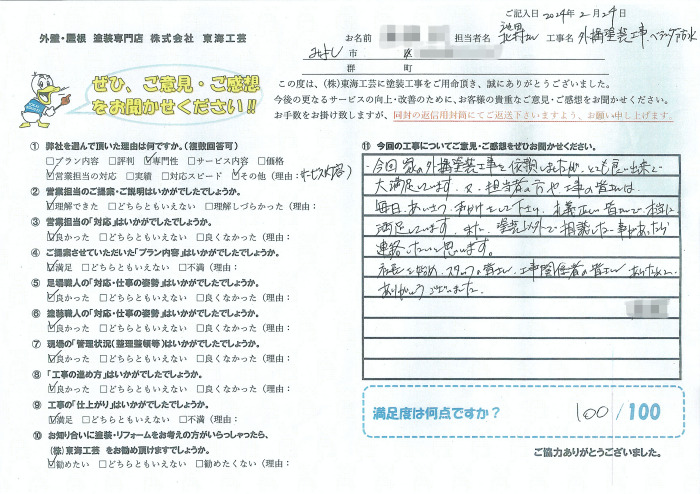 ご記入日 2024年 2月 24日
外壁・屋根 塗装専門店 株式会社 東海工芸
お名前 担当者名 池田 北村さん 工事名 外構塗装工事、ベランダ防水
みよし 市 町
郡 町
ぜひ、ご意見・ご感想
をお聞かせください!!
この度は、(株)東海工芸に塗装工事をご用命頂き、誠にありがとうございました。
今後の更なるサービスの向上・改善のために、お客様の貴重なご意見・ご感想をお聞かせください。
お手数をお掛け致しますが、同封の返信用封筒にてご返送下さいますよう、お願い申し上げます。
① 弊社を選んで頂いた理由は何ですか。(複数回答可)
□プラン内容 □評判 ☑専門性 □サービス内容 □価格
☑営業担当の対応 □実績 □対応スピード ☑その他(理由:
② 営業担当のご提案・ご説明はいかがでしたでしょうか。
☑理解できた □どちらともいえない □理解しづらかった(理由:
③ 営業担当の「対応」はいかがでしたでしょうか。
☑良かった □どちらともいえない □良くなかった(理由:
④ ご提案させていただいた「プラン内容」はいかがでしたでしょうか。
☑満足 □どちらともいえない □不満(理由:
⑤ 足場職人の「対応・仕事の姿勢」はいかがでしたでしょうか。
☑良かった □どちらともいえない □良くなかった(理由:
⑥ 塗装職人の「対応・仕事の姿勢」はいかがでしたでしょうか。
☑良かった □どちらともいえない □良くなかった(理由:
⑦ 現場の「管理状況(整理整頓等)はいかがでしたでしょうか。
☑良かった □どちらともいえない □良くなかった(理由:
⑧ 「工事の進め方」はいかがでしたでしょうか。
☑良かった □どちらともいえない □良くなかった(理由:
⑨ 工事の「仕上がり」はいかがでしたでしょうか。
☑満足 □どちらともいえない □不満(理由:
⑩ お知り合いに塗装・リフォームをお考えの方がいらっしゃったら、
(株)東海工芸 をお勧め頂けますでしょうか。
☑勧めたい □どちらともいえない □勧めたくない(理由:
⑪ 今回の工事についてご意見・ご感想をぜひお聞かせください。
・今回、家の外構塗装工事を依頼しましたが、とても良い出来で
大満足しています。又、担当者の方や工事の皆さんは、
毎日、あいさつ、声かけをして下さり、礼儀正しい皆さんで本当に
満足しています。また、塗装以外で相談したい事があったら
連絡したいと思います。
社長を始め、スタッフの皆さん、工事関係者の皆さん
ありがとうございました。
満足度は何点ですか? 100/100
ご協力ありがとうございました。